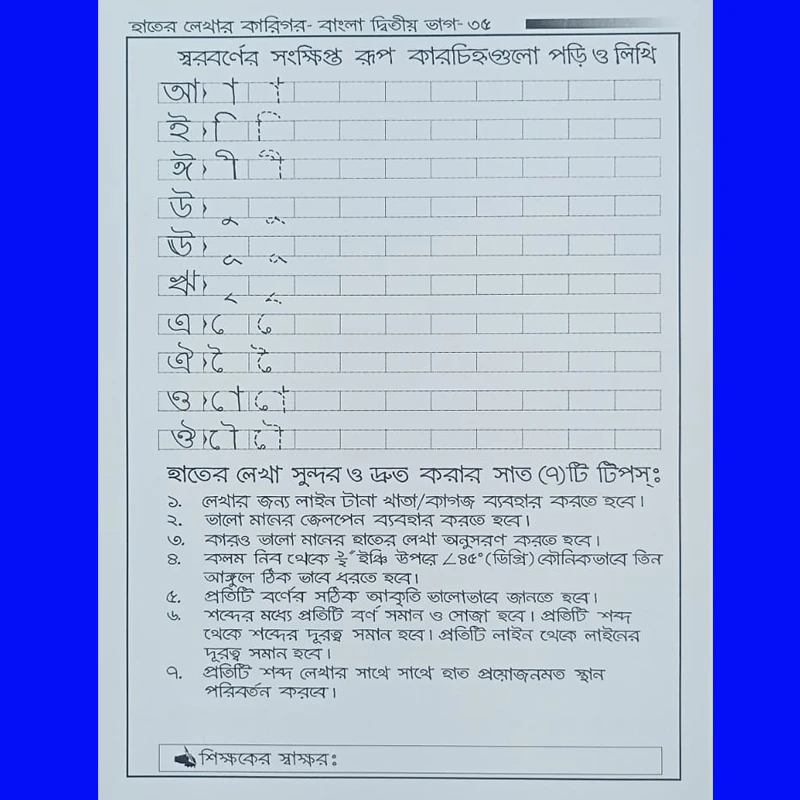 হাতের লেখার কারিগর- বাংলা দ্বিতীয় ভাগ- ৩৫
স্বরবর্ণের সংক্ষিপ্ত রূপ কারচিহ্নগুলো পড়ি ও লিখি
আ› া া
ই› ি ি
ঈ› ী ী
উ› ু ু
ঊ› ূ ূ
ঋ› ৃ ৃ
এ› ে ে
ঐ› ৈ ৈ
ও› ো ো
ঔ› ৌ ৌ
হাতের লেখা সুন্দর ও দ্রুত করার সাত (৭)টি টিপস্ঃ
১. লেখার জন্য লাইন টানা খাতা/কাগজ ব্যবহার করতে হবে।
২. ভালো মানের জেলপেন ব্যবহার করতে হবে।
৩. কারও ভালো মানের হাতের লেখা অনুসরণ করতে হবে।
৪. কলম নিব থেকে ½″ ইঞ্চি উপরে ∠৪৫°(ডিগ্রি) কৌনিকভাবে তিন
আঙ্গুলে ঠিক ভাবে ধরতে হবে।
৫. প্রতিটি বর্ণের সঠিক আকৃতি ভালোভাবে জানতে হবে।
৬. শব্দের মধ্যে প্রতিটি বর্ণ সমান ও সোজা হবে। প্রতিটি শব্দ
থেকে শব্দের দূরত্ব সমান হবে। প্রতিটি লাইন থেকে লাইনের
দূরত্ব সমান হবে।
৭. প্রতিটি শব্দ লেখার সাথে সাথে হাত প্রয়োজনমত স্থান
পরিবর্তন করবে।
শিক্ষকের স্বাক্ষরঃ